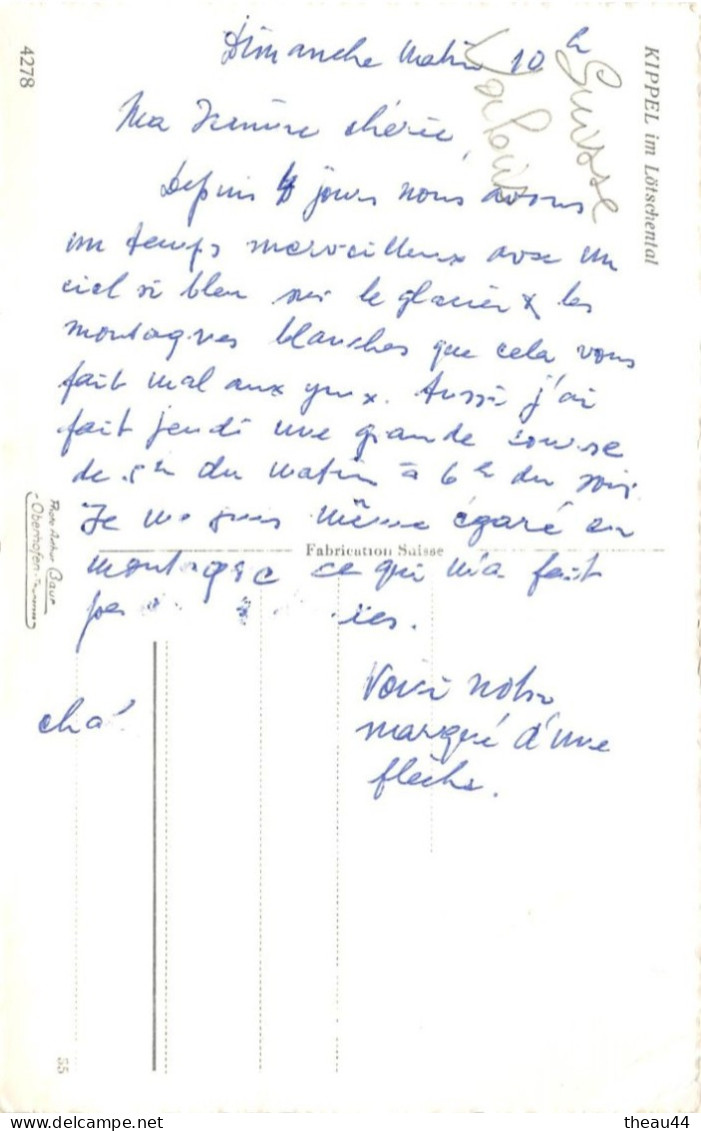 Dimanche Matin 10 h
Suisse
Valais
Ma chérie,
Depuis 4 jours nous avons
un temps merveilleux avec un
ciel si bleu sur le glacier & les
montagnes blanches que cela vous
fait mal aux yeux. Aussi j'ai
fait jeudi une grande course
de 5h du matin à 6h du soir.
Je me suis même égaré en
montagne ce qui m'a fait
ies.
Voici notre
marqué d'une
flèche.
KIPPEL im Lötschental
4278
Fabrication Suisse
Photo Arthur Baur
Oberhofen
55
theau44